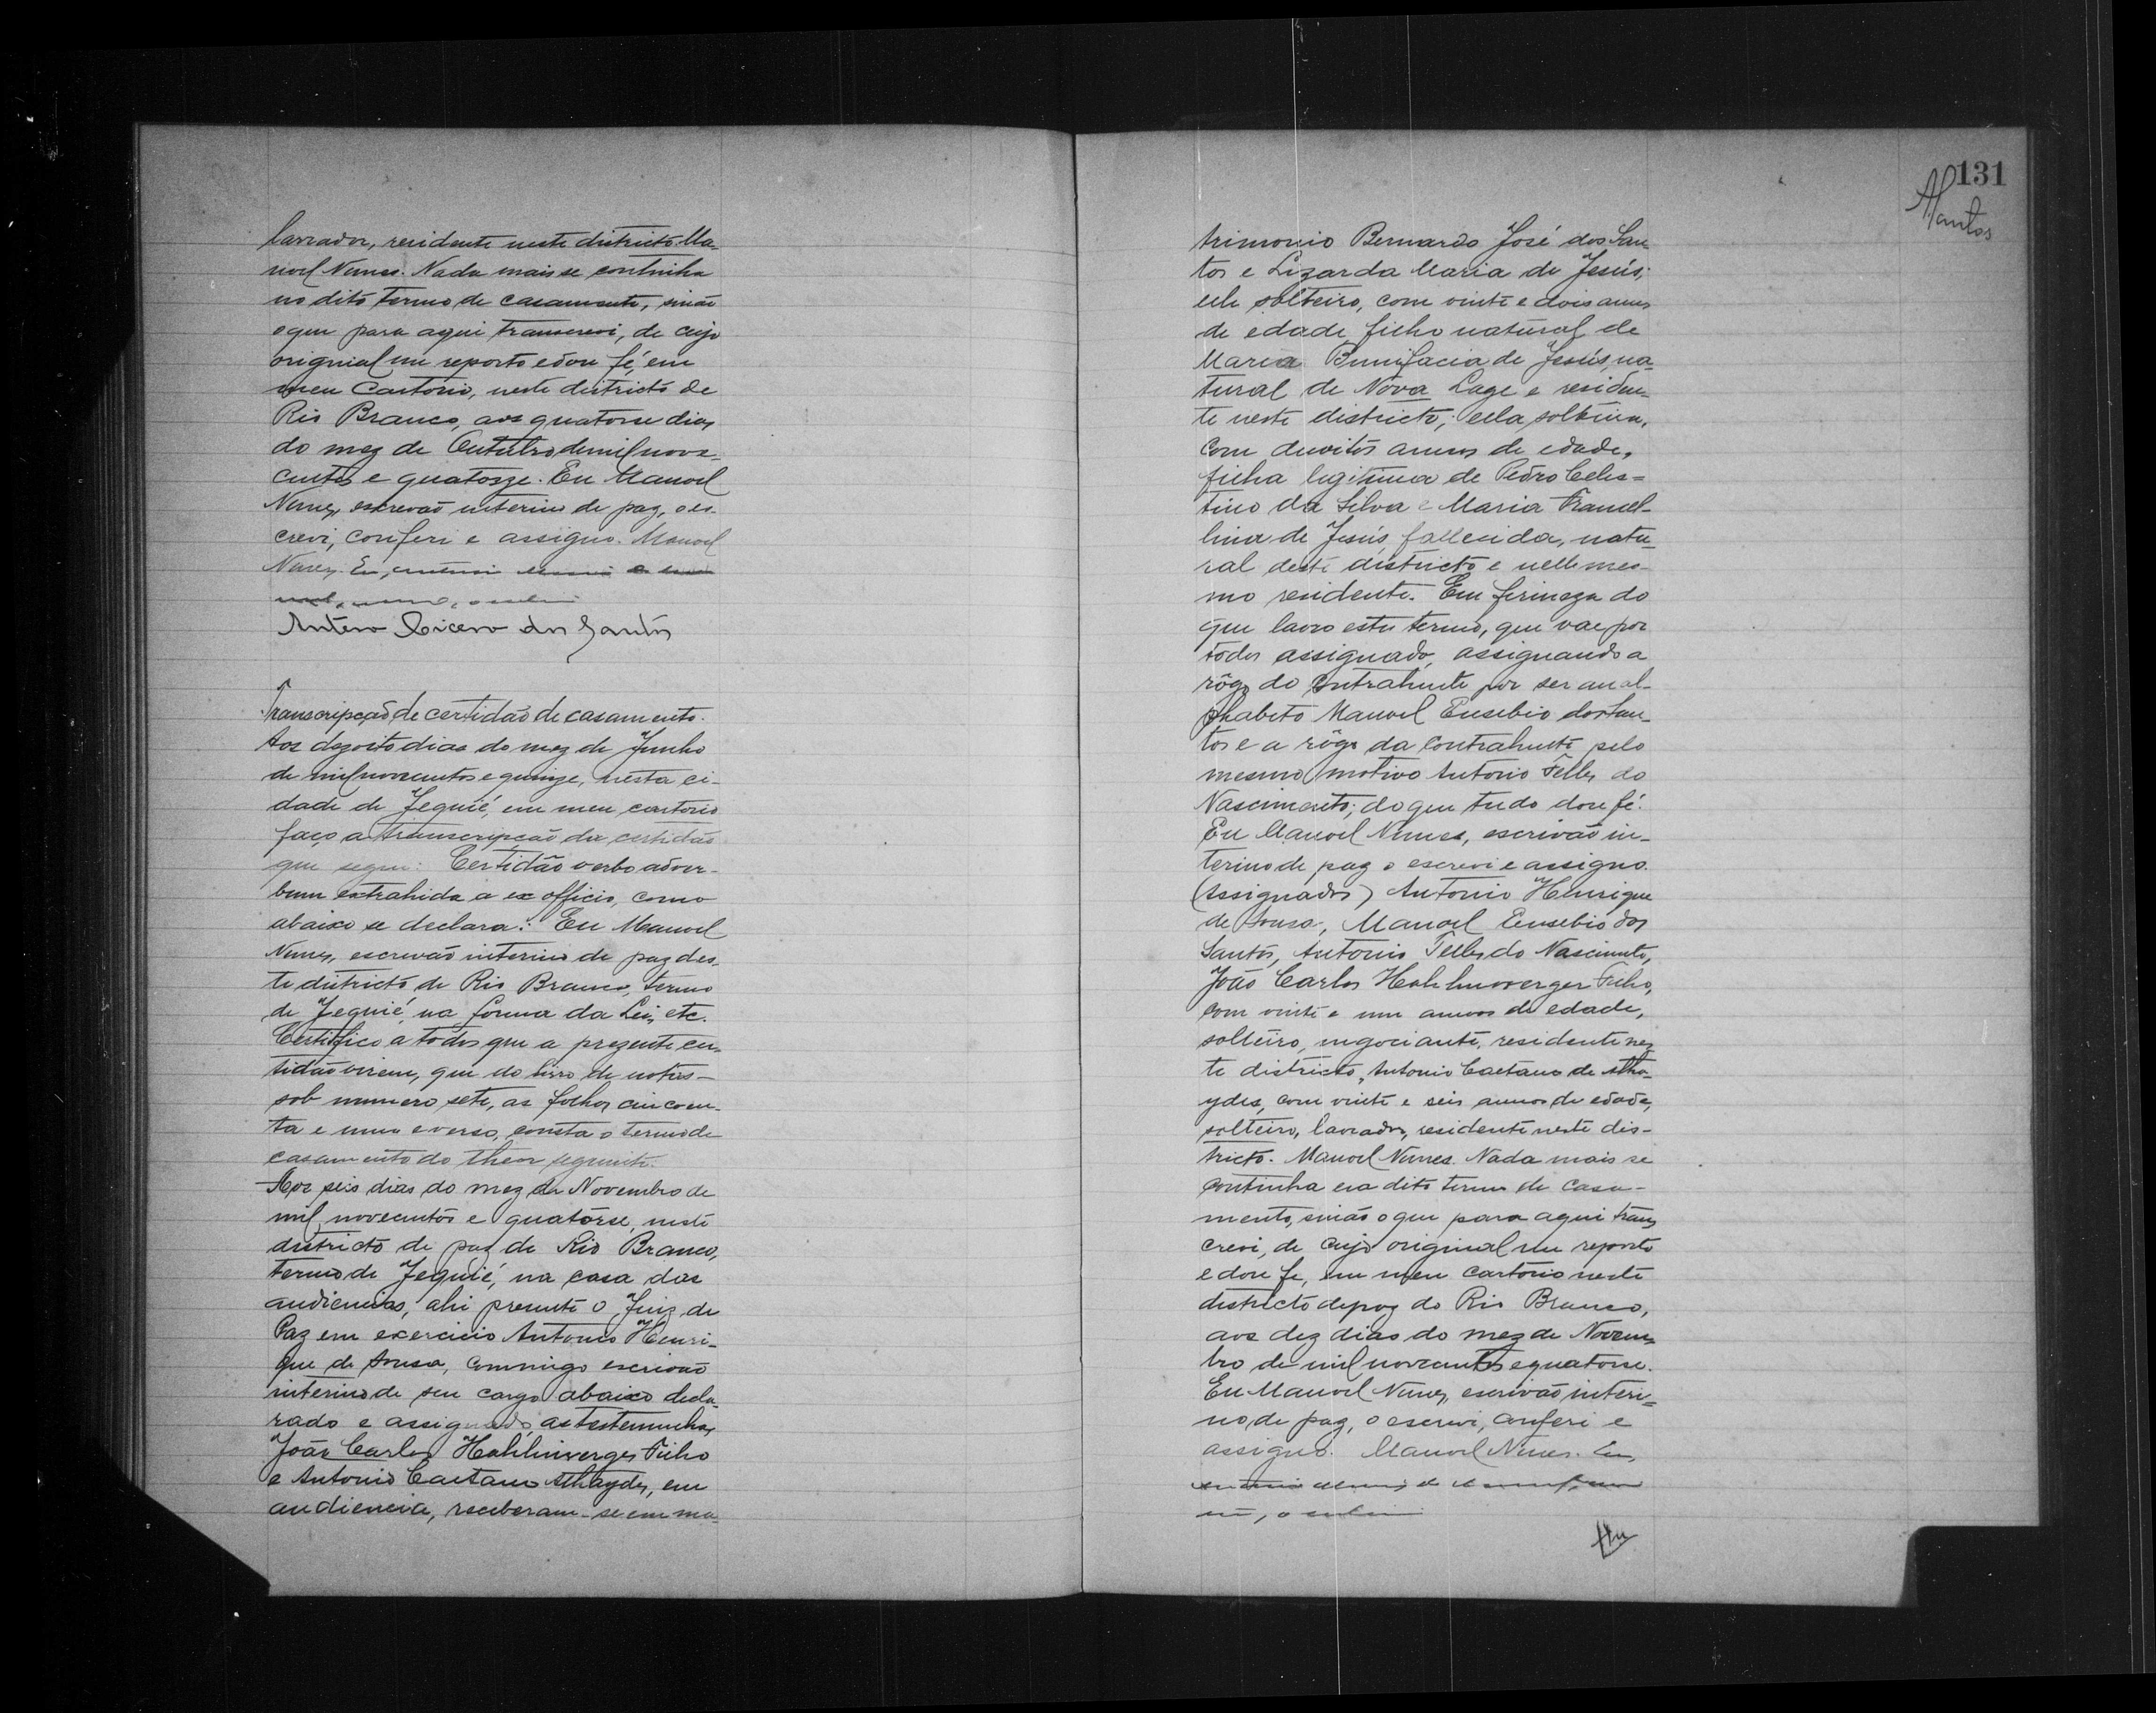 lavrador, residente neste districto. Ma-
noel Nunes. Nada mais se continha
no dito termo de casamento, sinão
o que para aqui transcrevi, de cujo
original me reporto e dou fé, em
meu Cartorio, neste districto de
Rio Branco, aos quatorse dias
do mez de Outubro de mil nove-
centos e quatorze. Eu Manoel
Nunes, escrevão interino de paz, o es-
crevi, conferi e assigno. Manoel
Nunes. Eu,
Antero Cicero dos Santos
Transcripção de certidão de casamento.
Aos dezoito dias do mez de Junho
de mil novecentos e quinze, nesta ci-
dade de Jequié, em meu cartorio
faço a transcripção da certidão
que segue: Certidão verbo adver-
bum extrahida a ex officio, como
abaixo se declara: Eu Manoel
Nunes, escrevão interino de paz des-
te districto de Rio Branco, termo
de Jequié, na forma da Lei, etc.
Certifico a todos que a prezente cer-
tidão virem, que do livro de notas-
sob numero sete, as folhas cincoen-
ta e uma e verso, consta o termo de
casamento do theor seguinte:
Aos seis dias do mez de Novembro de
mil novecentos e quatorse, neste
districto de paz de Rio Branco,
termo de Jequié, na casa das
audiencias, ahi presente o Juiz de
Paz em exercicio Antonio Henri-
que de Sousa, commigo escrivão
interino de seu cargo abaixo decla-
rado e assignado, as testemunhas
João Carlos Hohlenwerger Filho
e Antonio Caetano Athaydes, em
audiencia, receberam-se em ma-
131
ASantos
trimonio Bernardo José dos San-
tos e Lizarda Maria de Jesús;
elle solteiro, com vinte e dois annos
de edade, filho natural de
Maria Bunifacia de Jesús, na-
tural de Nova Lage e residen-
te neste districto; ella solteira,
com desoito annos de edade,
filha legitima de Pedro Celes-
tino da Silva e Maria Francel-
lina de Jesús, fallecida, natu-
ral deste districto e nelle mes-
mo residente. Em firmeza do
que lavro este termo, que vae por
todos assignado, assignando a
rôgo do contrahente por ser anal-
phabeto Manoel Eusebio dos San-
tos e a rôgo da contrahente pelo
mesmo motivo Antonio Telles do
Nascimento; do que tudo dou fé.
Eu Manoel Nunes, escrivão in-
terino de paz o escrevi e assigno.
(Assignados) Antonio Henrique
de Sousa, Manoel Eusebio dos
Santos, Antonio Telles do Nascimento,
João Carlos Hohlenwerger Filho,
com vinte e um annos de edade,
solteiro, negociante, residente nes-
te districto, Antonio Caetano de Atha-
ydes, com vinte e seis annos de edade,
solteiro, lavrador, residente neste dis-
tricto. Manoel Nunes. Nada mais se
continha em dito termo de casa-
mento, sinão o que para aqui trans-
crevi, de cujo original me reporto
e dou fe, em meu cartorio neste
districto de paz do Rio Branco,
aos dez dias do mez de Novem-
bro de mil novecentos e quatorse.
Eu Manoel Nunes, escrivão interi-
no de paz, o escrevi, conferi e
assigno. Manoel Nunes. Eu,